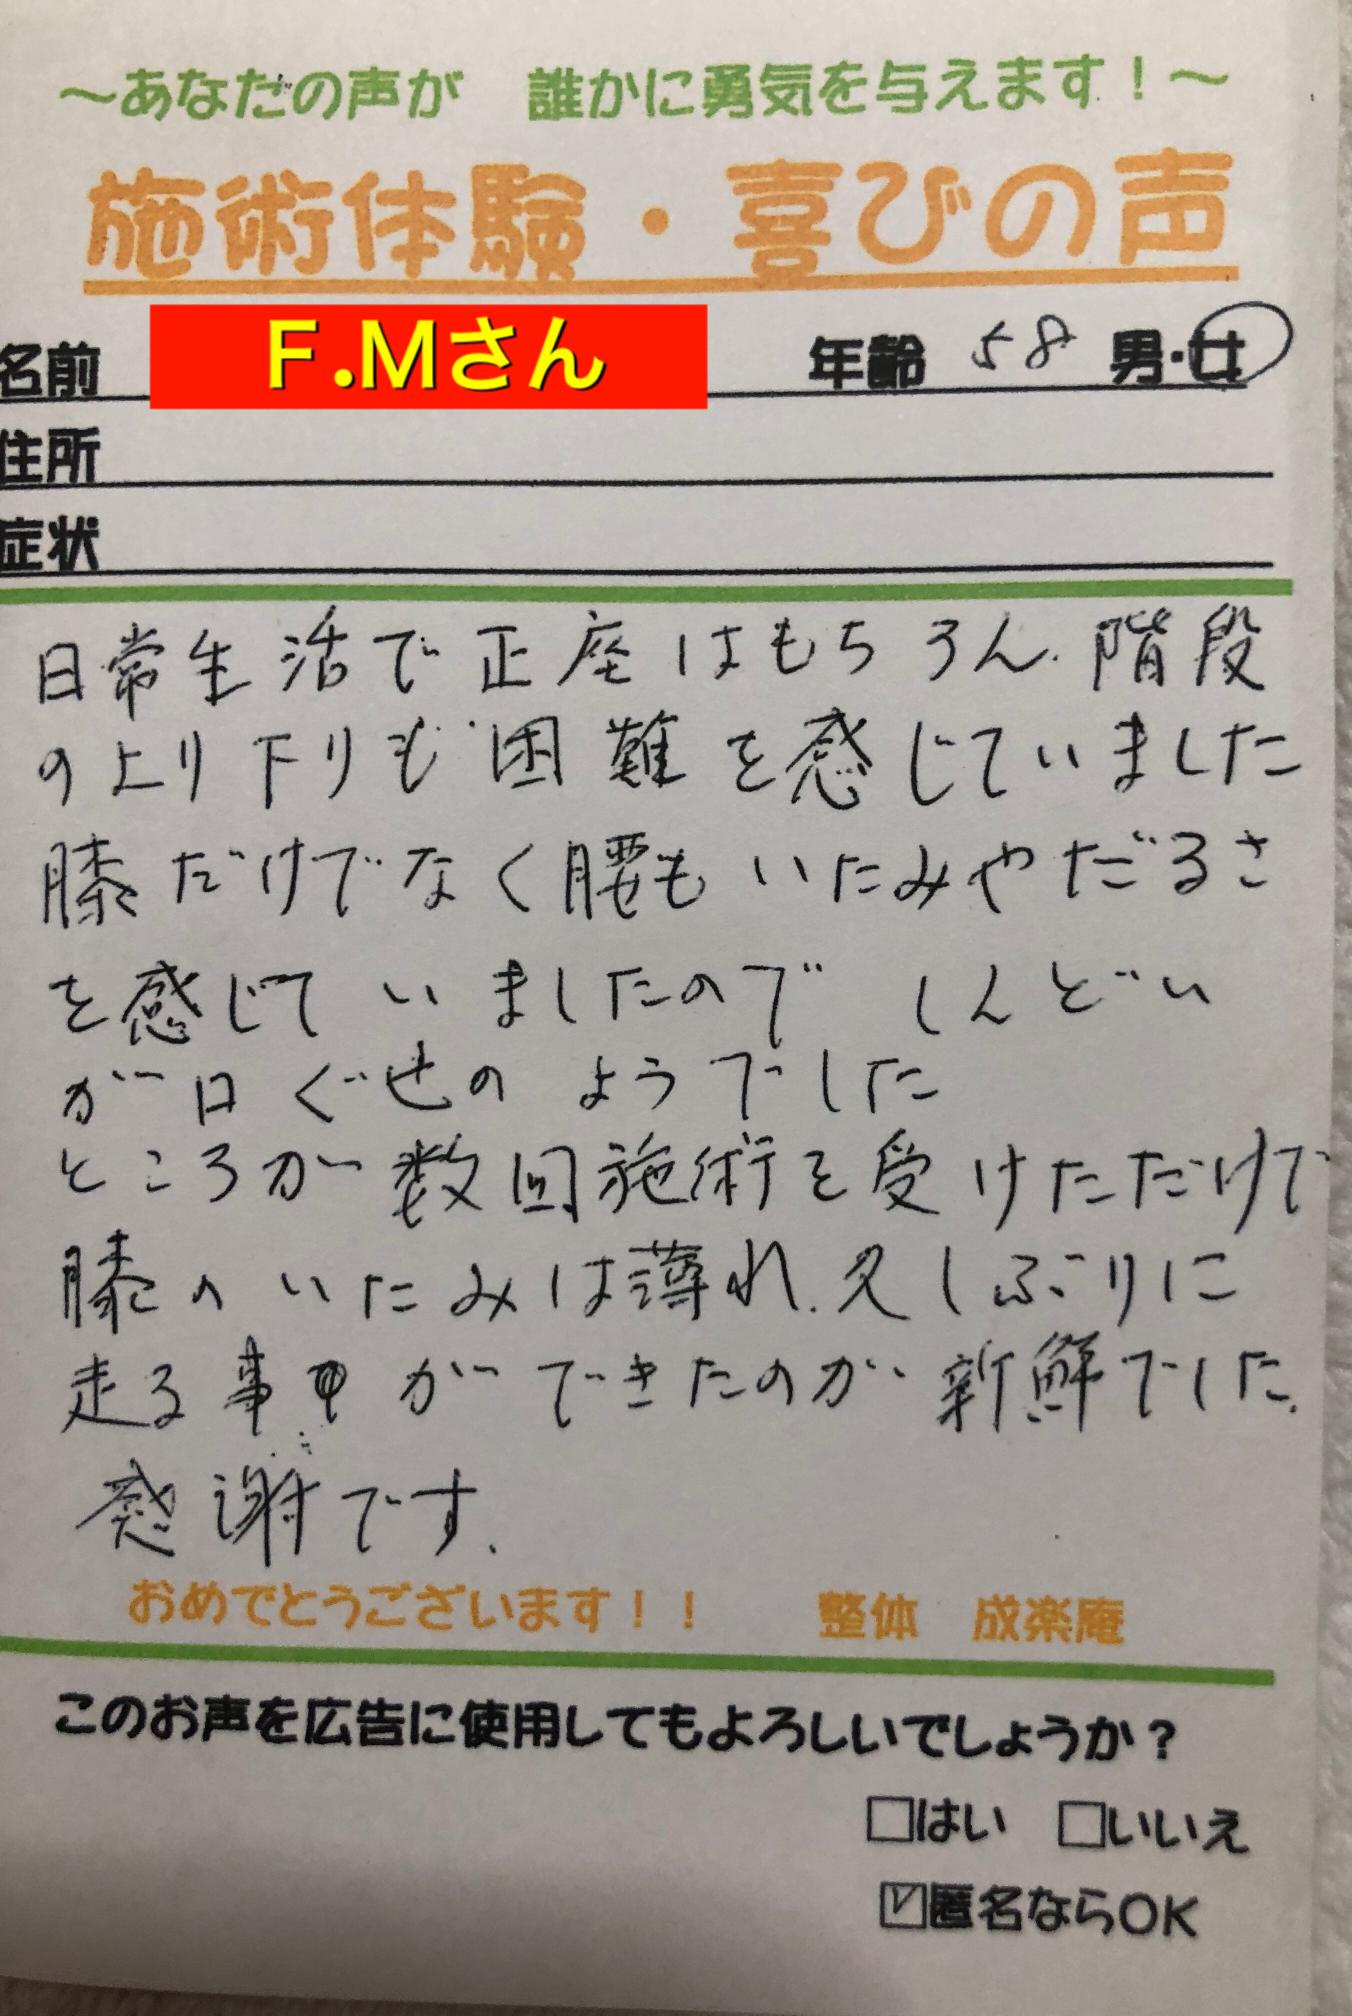 ～あなたの声が　誰かに勇気を与えます！～
施術体験・喜びの声
名前　F.Mさん　年齢 58 男・女
住所
症状
日常生活で正座はもちろん、階段
の上り下りも困難を感じていました
膝だけでなく腰もいたみやだるさ
を感じていましたので しんどい
が口ぐせのようでした
ところが数回施術を受けただけで
膝のいたみは薄れ、久しぶりに
走る事ができたのが新鮮でした。
感謝です。
おめでとうございます！！　整体　成楽庵
このお声を広告に使用してもよろしいでしょうか？
□はい　□いいえ
☑匿名ならOK